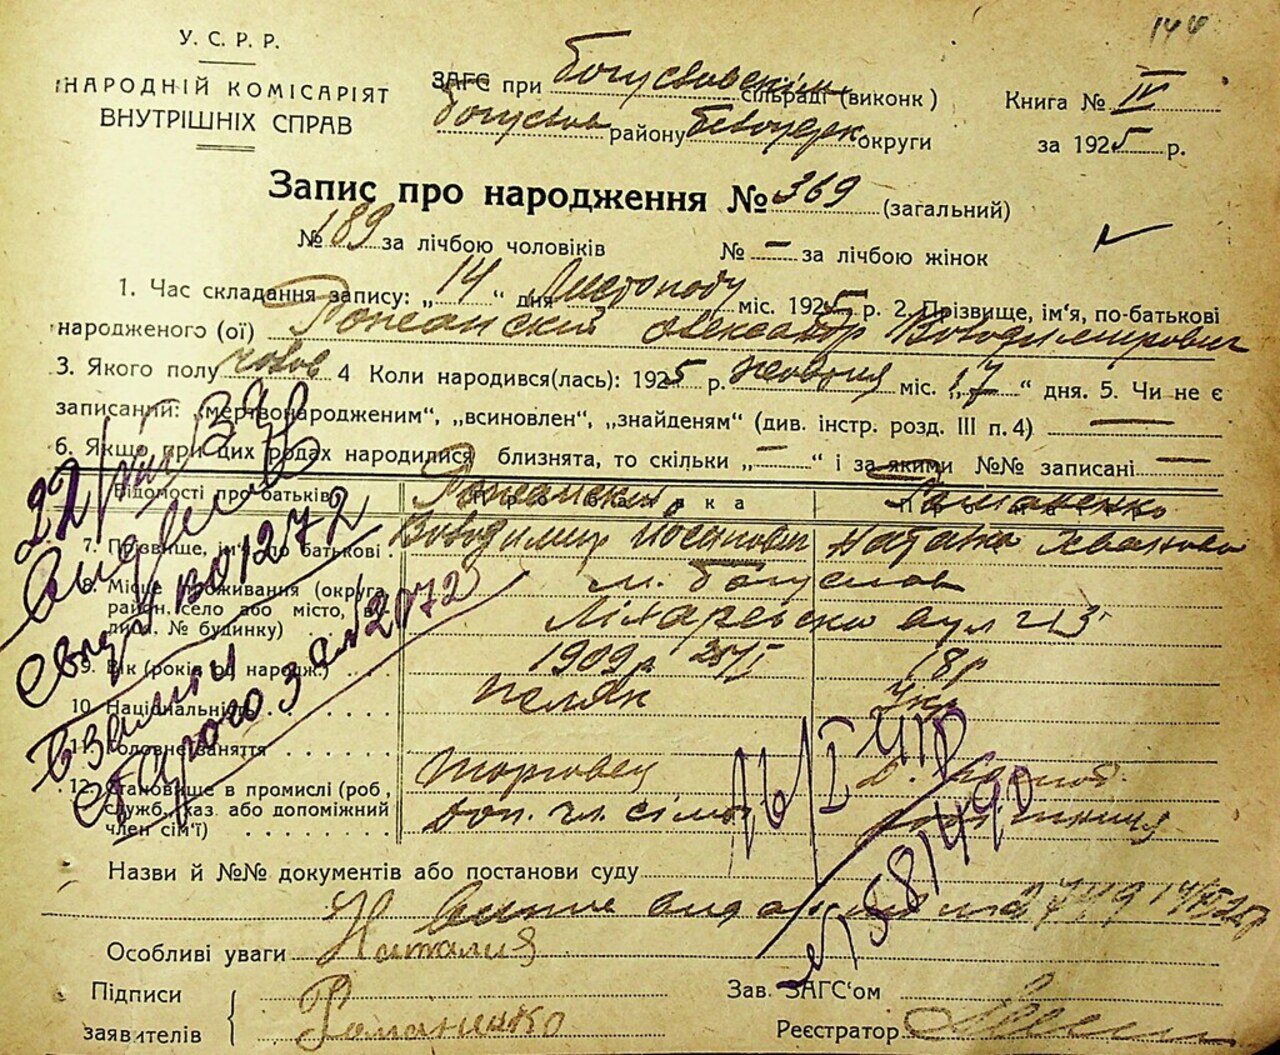 144
У. С. Р. Р.
НАРОДНІЙ КОМІСАРІЯТ
ВНУТРІШНІХ СПРАВ
ЗАГС при Богуславскім сільраді (виконк)
Богуслав району Білоцерк округи
Книга № IV
за 1925 р.
Запис про народження № 369 (загальний)
№ 189 за лічбою чоловіків № — за лічбою жінок
1. Час складання запису: „14“ дня Листопаду міс. 1925 р. 2. Прізвище, ім'я, по-батькові
народженого (ої) Рожанский Олександр Володимирович
3. Якого полу чолов 4 Коли народився(лась): 1925 р. жовтня міс. „17“ дня. 5. Чи не є
записаний: „мертвонародженим“, „всиновлен“, „знайденям“ (див. інстр. розд. III п. 4) —
6. Якщо при цих родах народилися близнята, то скільки „—“ і за якими №№ записані —
Відомості про батьків Рожанский Романенко
7. Прізвище, ім'я, по батькові Володимир Йосипович Наталка
8. Місце проживання (округа, м. Богуслав
район, село або місто, вулиця, № будинку) вул 23
9. Вік (років од народж.) 1909 р 18 р
10. Національність поляк Укр
11. Головне заняття Торговец
12. Становище в промислі (роб., служб., хаз або допоміжний член сім'ї) доп. чл. сімї
Назви й №№ документів або постанови суду
Особливі уваги Наталия
Підписи заявителів Романенко
Зав. ЗАГС'ом
Реєстратор
22/VIII 39
св 1272
взамін
старого за № 2072
16/I 41р
№ 158/49р